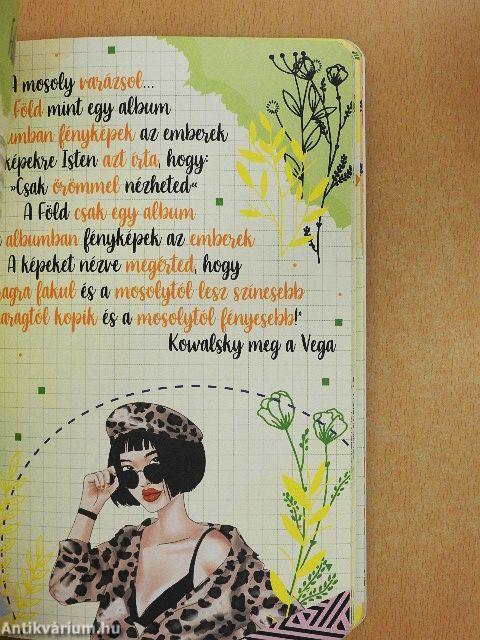 A mosoly varázsol...
Föld mint egy album
fényképek az emberek
képekre Isten azt írta, hogy:
»Csak örömmel nézheted«
A Föld csak egy album
albumban fényképek az emberek
A képeket nézve megérted, hogy
fakul és a mosolytól lesz színesebb
kopik és a mosolytól fényesebb!"
Kowalsky meg a Vega
Antikvárium.hu